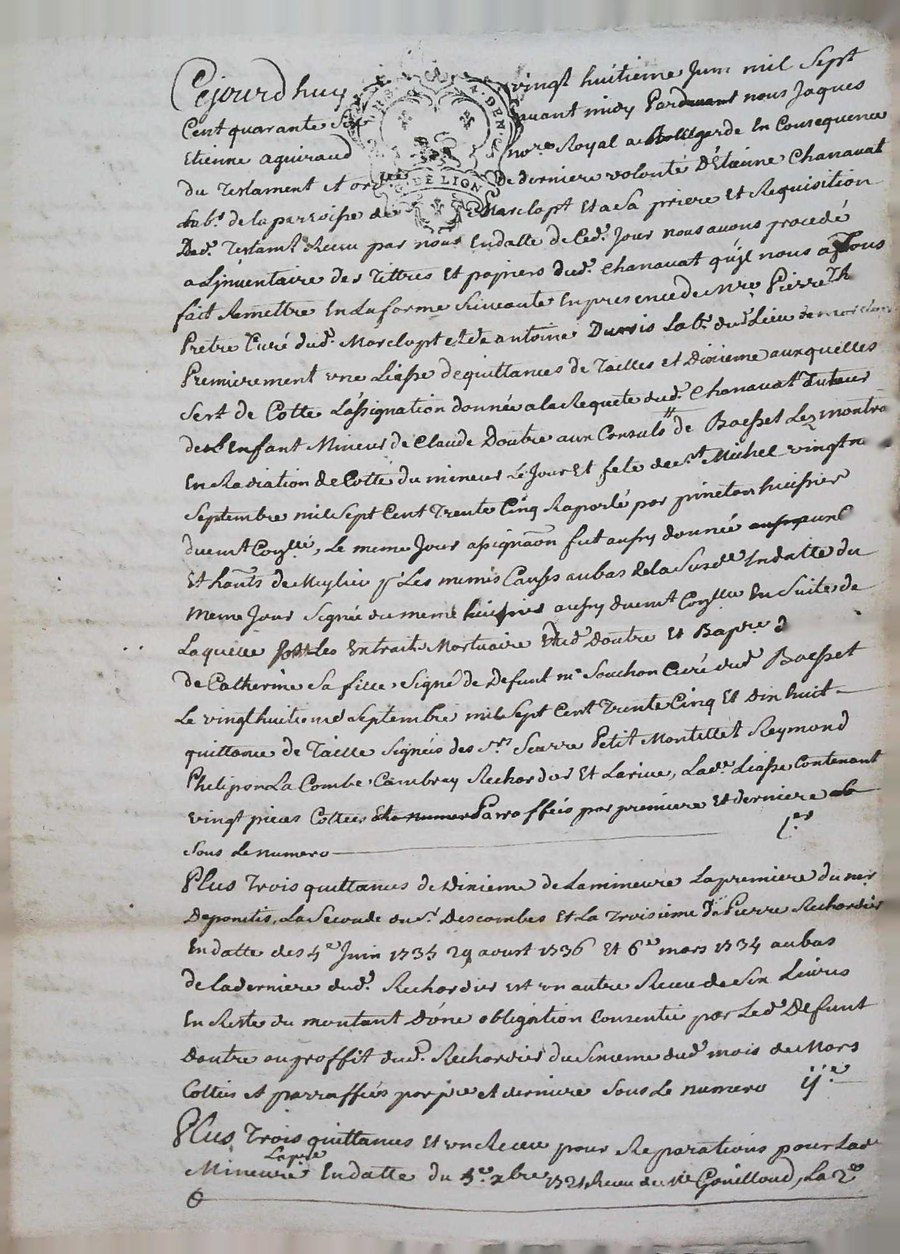 Cejourd'huy vingt huitieme Juin mil Sept
Cent quarante avant midy Pardevant nous Jaques
Etienne aguiraud no.re Royal a Bellegarde En Consequence
du Testament et de derniere volonté D'Etienne Chanavat
Lab.r de la parroisse de Marclopt Et a Sa priere Et Requisition
Ded. Testam.t Receu par nous En datte de Ced. Jour nous avons procedé
a L'jnventaire des Tittres Et papiers dud. Chanavat qu'jl nous a
fait Remettre En la forme Suivante En presence de M.re Pierre
Prêtre Curé dud. Marclopt et de antoine Lab.r dud. Lieu
Premierement vne Liasse de quittances de Tailles et Dixieme auxquelles
Sert de Cotte L'assignation donnée a la Requete dud. Chanavat Tuteur
de L'Enfant Mineur de Claude Doutre aux Consuls de Boesset Les montro
En Radiation de Cotte du mineur Le Jour Et fete de St Michel vingt n
Septembre mil Sept Cent Trente Cinq Raporté par pineton huissier
duemt Coñllé, Le meme Jour assignaõn fut aussy donnée
Et hañts de Les memes Causes au bas de la Susd.e En datte du
Meme Jour Signée du meme huissier aussy duemt Coñllée En Suite de
Laquelle sont Les Extraits Mortuaire dud. Doutre Et Bap.re
de Catherine Sa fille Signé de Defunt m.e Souchon Curé dud. Boesset
Le vingt huitieme Septembre mil Sept Cent Trente Cinq Et Dix huit
quittance de Taille Signées des S.rs Scarre Petit Montellet Reymond
Phelipon La Combe Cambray Rechordier Et Larive, Lad. Liasse Contenant
vingt pieces Cottées Parraffées par premiere et derniere
Sous Le numero 1.er
Plus Trois quittances de Dixieme de La mineure La premiere du
Deponcins, La Seconde du S.r Descombes Et La Troisieme de Pierre Rechordier
En datte des 4.e Juin 1735 29 aoust 1736 Et 6.e mars 1734 au bas
de la derniere dud. Rechordier Est vn autre Receu de Six Livres
En Reste du montant D'ône obligation Consentie par Led. Defunt
Doutre au proffit dud. Rechordier du Sixieme dud. mois de Mars
Cottées et parraffées par p.re et derniere Sous Le numero ij.e
Plus Trois quittances Et vn Receu pour Reparations pour Lad.
Mineure La p.re En datte du 5.e xbre Receu de Gouilloud, La 2.e